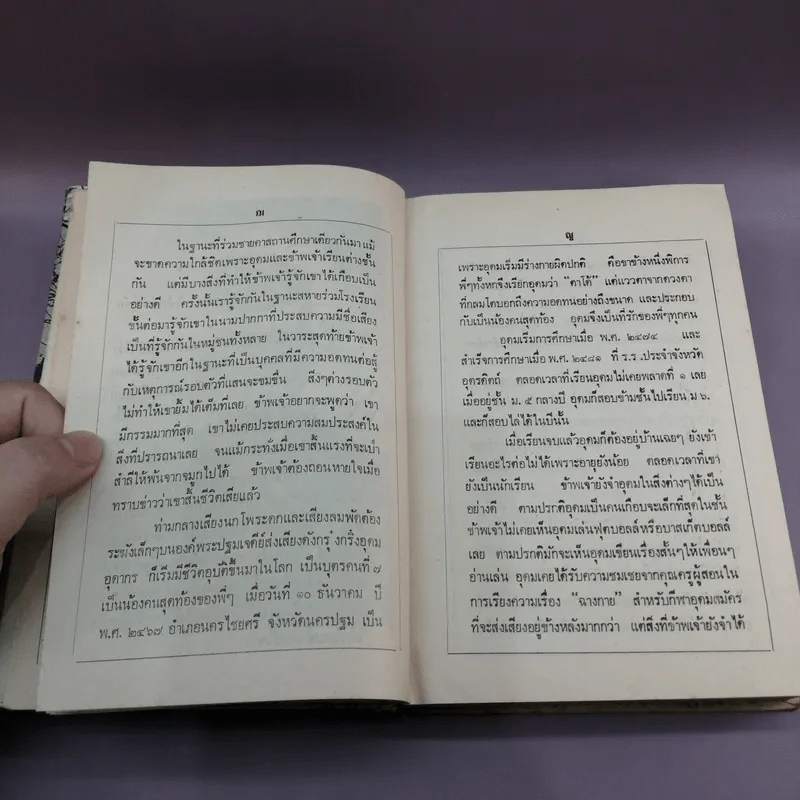 ฌ
ในฐานะที่ร่วมชายคาสถานศึกษาเดียวกันมา แม้
จะขาดความใกล้ชิดเพราะอุดมและข้าพเจ้าเรียนต่างชั้น
กัน แต่มีบางสิ่งที่ทำให้ข้าพเจ้ารู้จักเขาได้เกือบเป็น
อย่างดี ครั้งนั้นเรารู้จักกันในฐานะสหายร่วมโรงเรียน
ขั้นต่อมารู้จักเขาในนามปากกาที่ประสบความมีชื่อเสียง
เป็นที่รู้จักกันในหมู่ชนทั้งหลาย ในวาระสุดท้ายข้าพเจ้า
ได้รู้จักเขาอีกในฐานะที่เป็นบุคคลที่มีความอดทนต่อสู้
กับเหตุการณ์รอบตัวที่แสนจะขมขื่น สิ่งๆต่างรอบตัว
ไม่ทำให้เขายิ้มได้เต็มที่เลย ข้าพเจ้าอยากจะพูดว่า เขา
มีกรรมมากที่สุด เขาไม่เคยประสบความสมประสงค์ใน
สิ่งที่ปรารถนาเลย จนแม้กระทั่งเมื่อเขาสิ้นแรงที่จะเป่า
สำลีให้พ้นจากจมูกไปได้ ข้าพเจ้าต้องถอนหายใจเมื่อ
ทราบข่าวว่าเขาสิ้นชีวิตเสียแล้ว
ท่ามกลางเสียงนกโพระดกและเสียงลมพัดต้อง
ระฆังเล็กๆบนองค์พระปฐมเจดีย์ส่งเสียงดังกรุ๋งกริ๋งอุดม
อุดากร ก็เริ่มมีชีวิตอุบัติขึ้นมาในโลก เป็นบุตรคนที่ ๗
เป็นน้องคนสุดท้องของพี่ๆ เมื่อวันที่ ๑๐ ธันวาคม ปี
พ.ศ. ๒๔๖๗ อำเภอนครไชยศรี จังหวัดนครปฐม เป็น
ญ
เพราะอุดมเริ่มมีร่างกายผิดปกติ คือขาข้างหนึ่งพิการ
พี่ๆทั้งหกจึงเรียกอุดมว่า “ตาโต้” แต่แววตาจากดวงตา
ที่กลมโตบอกถึงความอดทนอย่างถึงขนาด และประกอบ
กับเป็นน้องคนสุดท้อง อุดมจึงเป็นที่รักของพี่ๆทุกคน
อุดมเริ่มการศึกษาเมื่อ พ.ศ. ๒๔๗๔ และ
สำเร็จการศึกษาเมื่อ พ.ศ. ๒๔๘๑ ที่ ร.ร .ประจำจังหวัด
อุตรดิตถ์ ตลอดเวลาที่เรียนอุดมไม่เคยพลาดที่ ๑ เลย
เมื่ออยู่ชั้น ม. ๕ กลางปี อุดมก็สอบข้ามชั้นไปเรียน ม ๖.
และก็สอบไล่ได้ในปีนั้น
เมื่อเรียนจบแล้วอุดมก็ต้องอยู่บ้านเฉยๆ ยังเข้า
เรียนอะไรต่อไม่ได้เพราะอายุยังน้อย ตลอดเวลาที่เขา
ยังเป็นนักเรียน ข้าพเจ้ายังจำอุดมในสิ่งต่างๆได้เป็น
อย่างดี ตามปรกติอุดมเป็นคนเกือบจะเล็กที่สุดในชั้น
ข้าพเจ้าไม่เคยเห็นอุดมเล่นฟุตบอลล์หรือบาสเก็ตบอลล์
เลย ตามปรกติมักจะเห็นอุดมเขียนเรื่องสั้นๆให้เพื่อนๆ
อ่านเล่น อุดมเคยได้รับความชมเชยจากคุณครูผู้สอนใน
การเรียงความเรื่อง “ฉางกาย” สำหรับกีฬาอุดมสมัคร
ที่จะส่งเสียงอยู่ข้างหลังมากกว่า แต่สิ่งที่ข้าพเจ้ายังจำได้